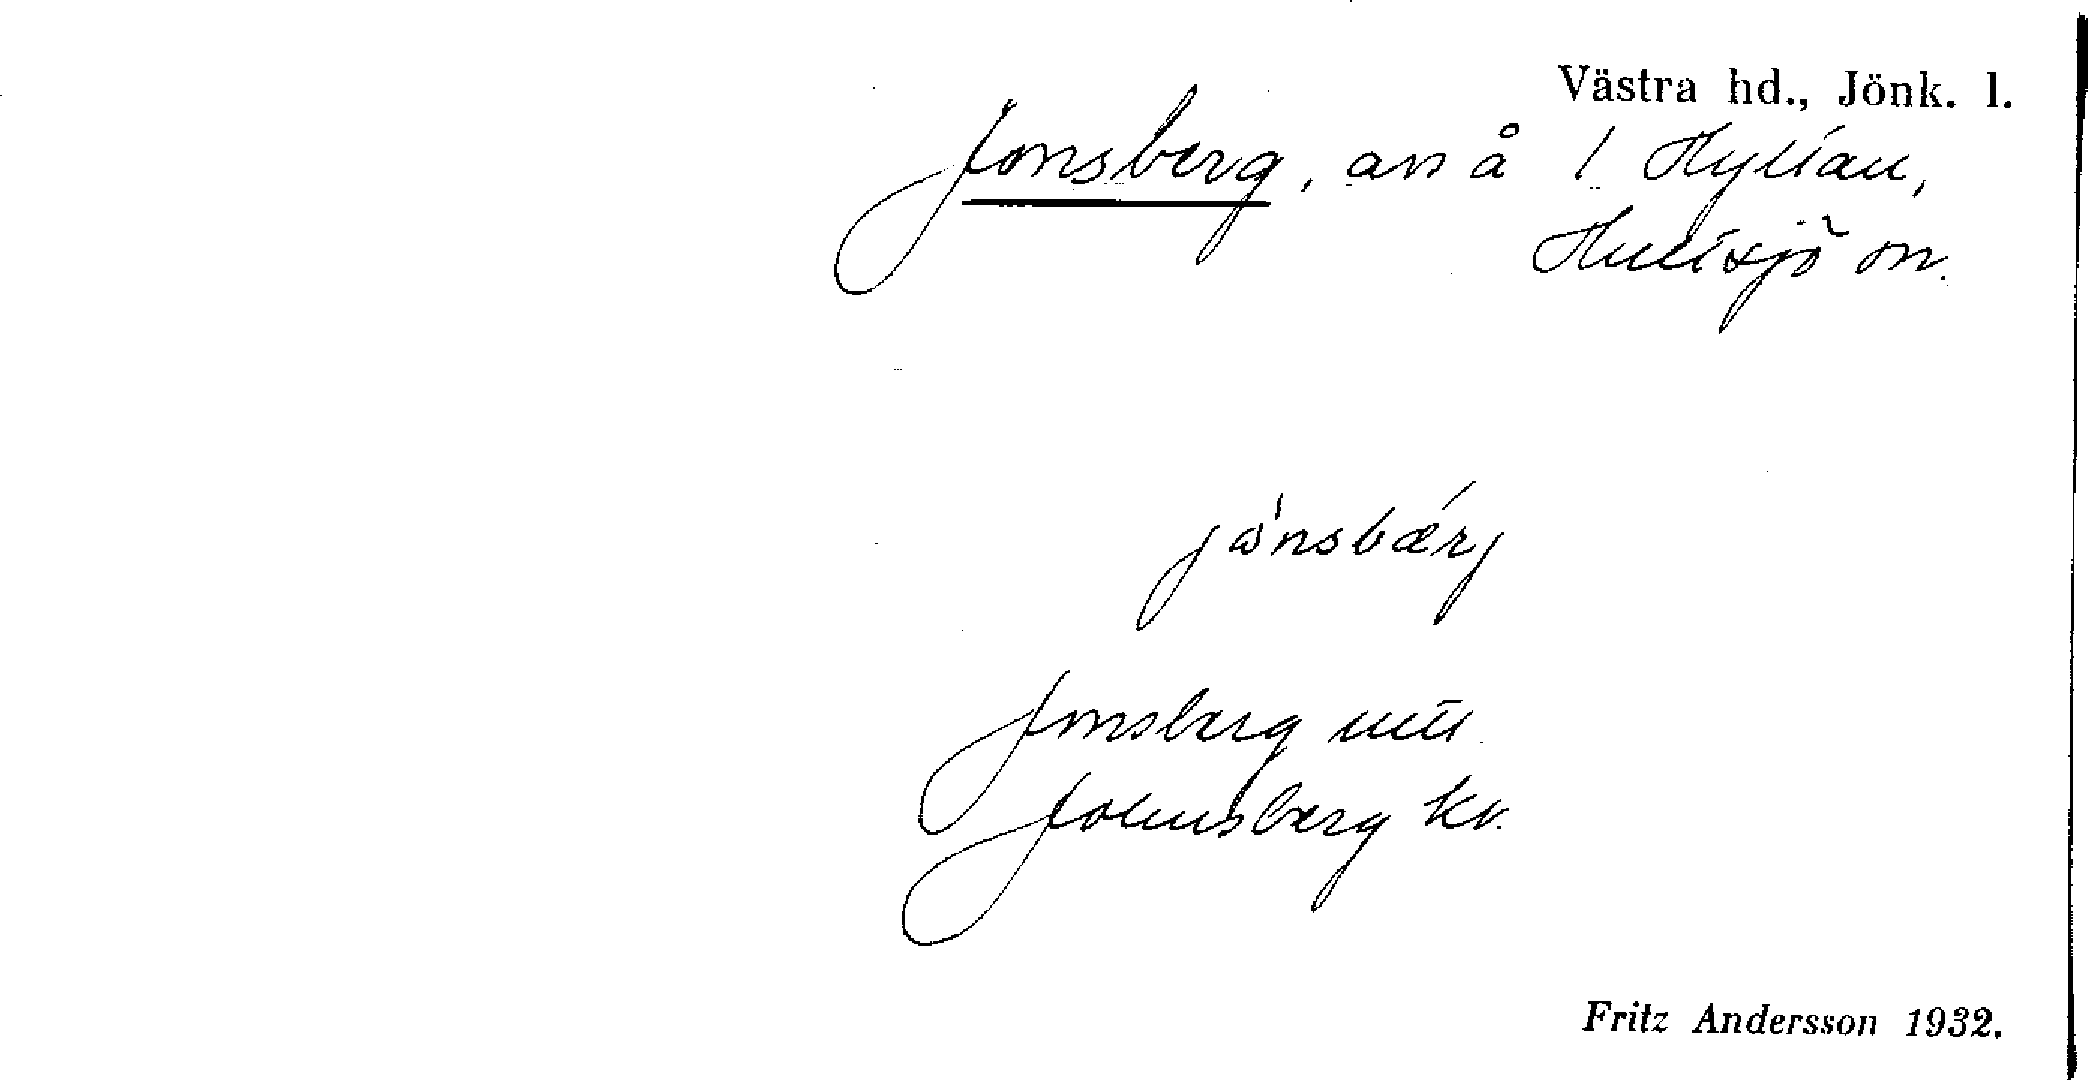 Västra hd., Jönk. l.
Jonsberg, avs å 1 Hyltan,
Hultsjö sn.
jånsbærj
Jonsberg utt.
Johnsberg kv.
Fritz Andersson 1932.